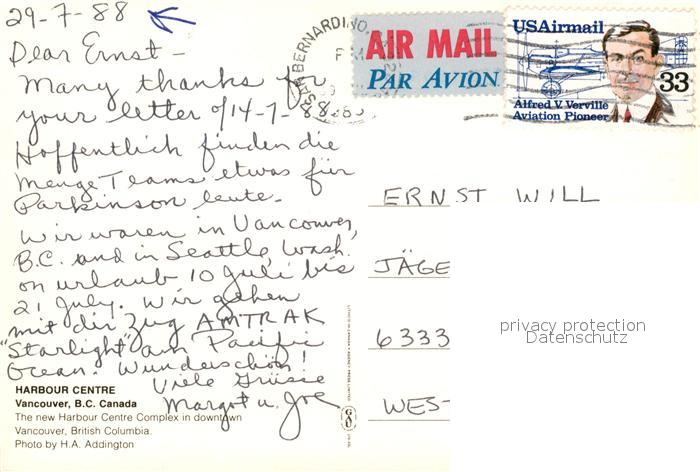 29-7-88
Dear Ernst -
Many thanks for
your letter of 14-7-88
Hoffentlich finden die
Menge Teams etwas für
Parkinson leute.
Wir waren in Vancouver,
B.C. and in Seattle, Wash.
on urlaub 10 Juli bis
21 July. Wir gehen
mit die Zug AMTRAK
"Starlight" am Pacific
Ocean. Wunderschön!
Viele Grüsse
Margot u. Joe
HARBOUR CENTRE
Vancouver, B.C. Canada
The new Harbour Centre Complex in downtown
Vancouver, British Columbia.
Photo by H.A. Addington
SAN BERNARDINO,
AIR MAIL
PAR AVION
USAirmail
33
Alfred V. Verville
Aviation Pioneer
ERNST WILL
JÄGE
6333
WES
privacy protection
Datenschutz